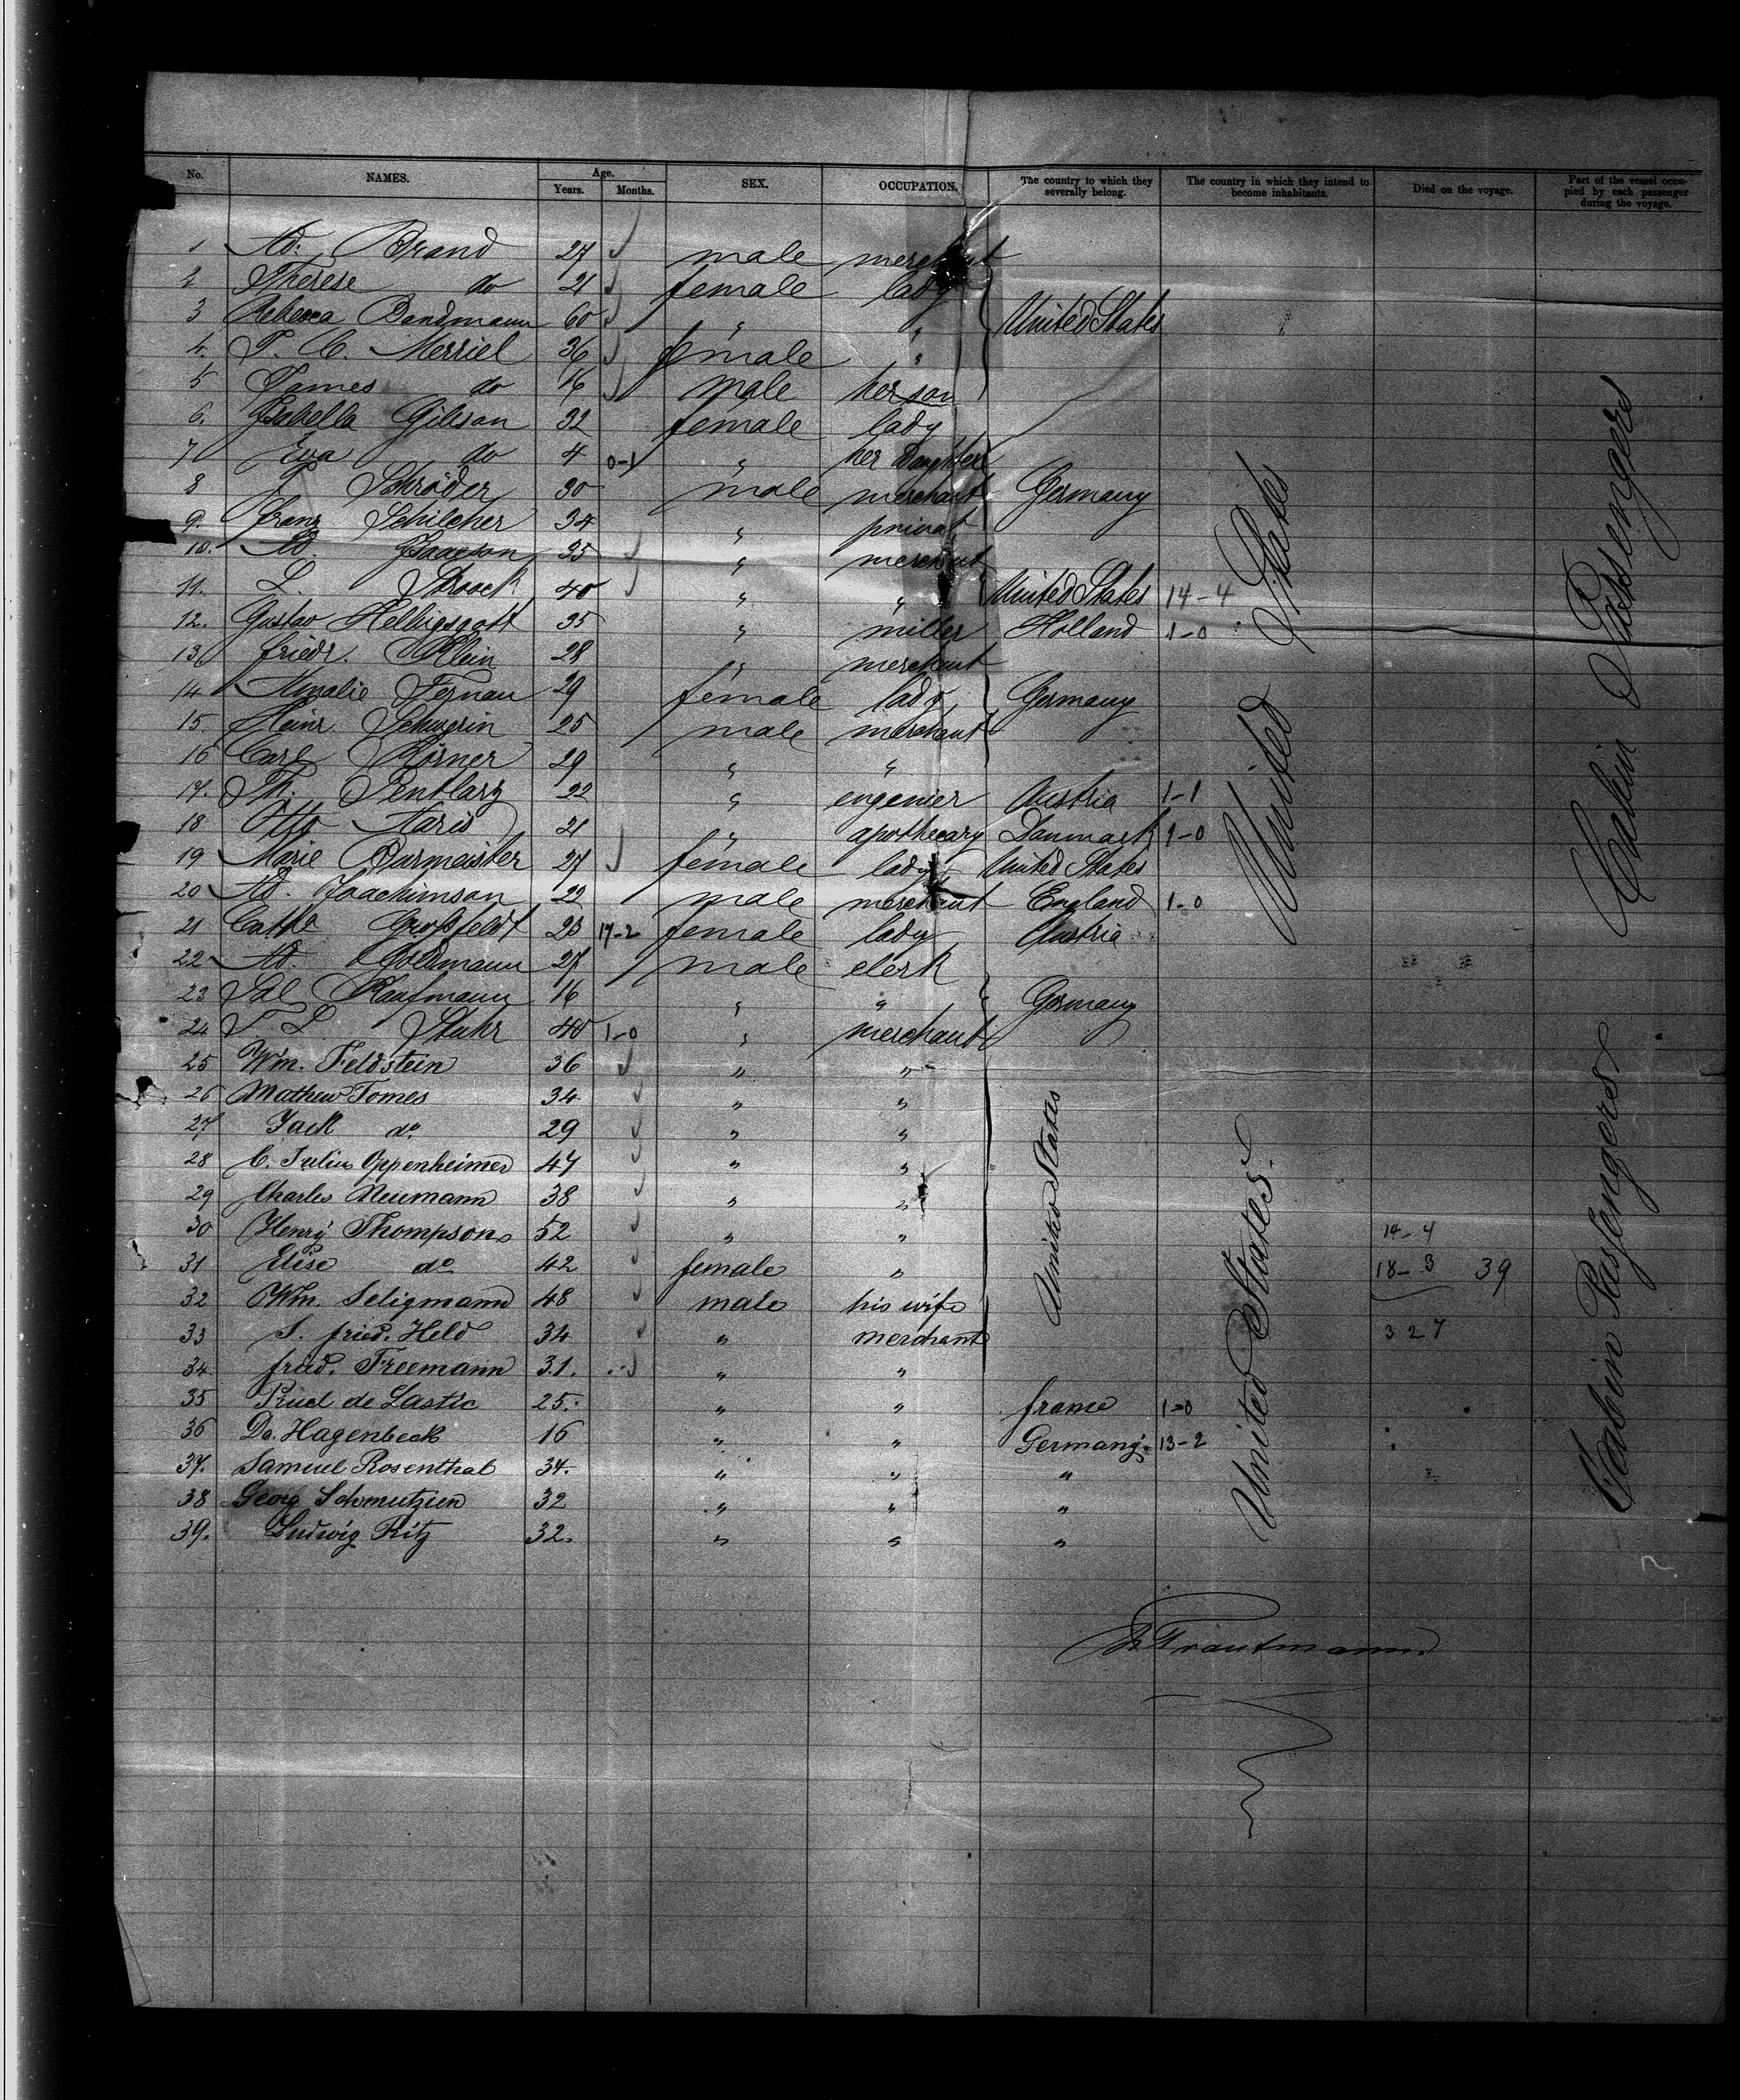 No. NAMES. Age. Years. Months. SEX. OCCUPATION. The country to which they severally belong. The country in which they intend to become inhabitants. Died on the voyage. Part of the vessel occupied by each passenger during the voyage.
1 Ad. Brand 27 male merchant
2 Therese do 21 female lady
3 Rebecca Bendmann 60 " " United States
4. T. C. Merriel 36 female "
5 James do 16 male her son
6. Isabella Gibson 32 female lady
7 Eva do 4 0-1 " her daughter
8 Schröder 30 male merchant Germany
9. Franz Schilcher 34 " privat
10. Ad. Isaacson 35 " merchant
11. L. Stroock 40 " " United States 14-4
12. Gustav Helbigsgott 35 " miller Holland 1-0
13 Friedr. Klein 28 " merchant
14 Amalie Fernau 29 female lady Germany
15. Heinr. Schwerin 25 male merchant
16 Carl Körner 29 " "
17. Th. Pentlarz 22 " engenier Austria 1-1
18 Otto Haris 21 " apothecary Danmark 1-0
19 Marie Burmeister 27 female lady United States
20 Ad. Joachimson 22 male merchant England 1-0
21 Cathe Großfeldt 23 17-2 female lady Austria
22 Ad. Goldmann 27 male clerk
23 Sal Kaufmann 16 " " Germany
24 T. L. Stuhr 40 1-0 " merchant
25 Wm. Feldstein 36 " "
26 Mathew Tomes 34 " "
27 Jack do. 29 " "
28 C. Julius Oppenheimer 47 " "
29 Charles Neumann 38 " "
30 Henry Thompson 52 " " 14-4
31 Elise do 42 female " 18-3 39
32 Wm. Seligmann 48 male his wife
33 S. fried. Held 34 " merchant 327
34 fried. Freemann 31. " "
35 Paul de Lastic 25. " " france 1-0
36 Do. Hagenbeck 16 " " Germany 13-2
37. Samuel Rosenthal 34. " " "
38 Georg Schmutzien 32 " " "
39. Ludwig Ritz 32. " " "
United States
United States
United States.
Cabin Passengers
Cabin Passengers
Trautmann